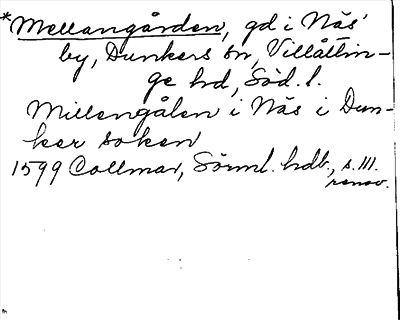 *Mellangården, gd i Näs'
by, Dunkers sn, Villåttin-
ge hd, Söd. l.
Millengålen i Näs i Dun-
ker soken
1599 Collmar, Sörml. hdb., s. 111.
renov.